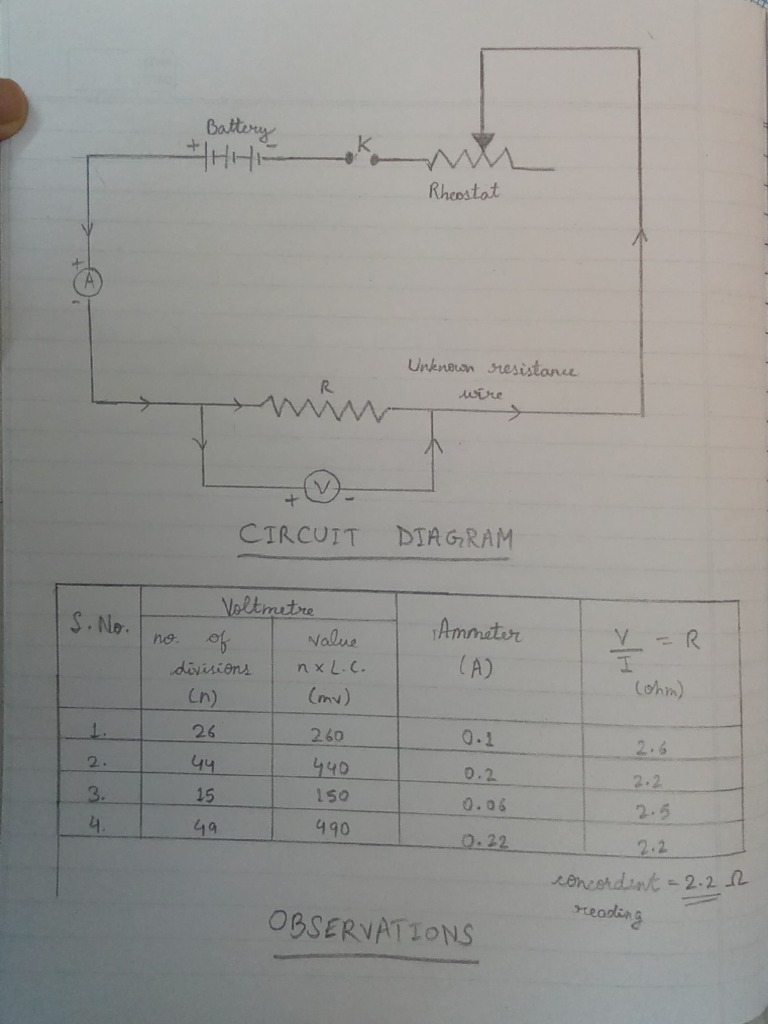 Battery
+ -
K
Rheostat
+
A
-
Unknown resistance
wire
R
+ V -
CIRCUIT DIAGRAM
S. No. Voltmetre Ammeter (A) V/I = R (ohm)
no. of divisions (n) value n x L.C. (mv)
1. 26 260 0.1 2.6
2. 44 440 0.2 2.2
3. 15 150 0.06 2.5
4. 49 490 0.22 2.2
concordint = 2.2 Ω
reading
OBSERVATIONS